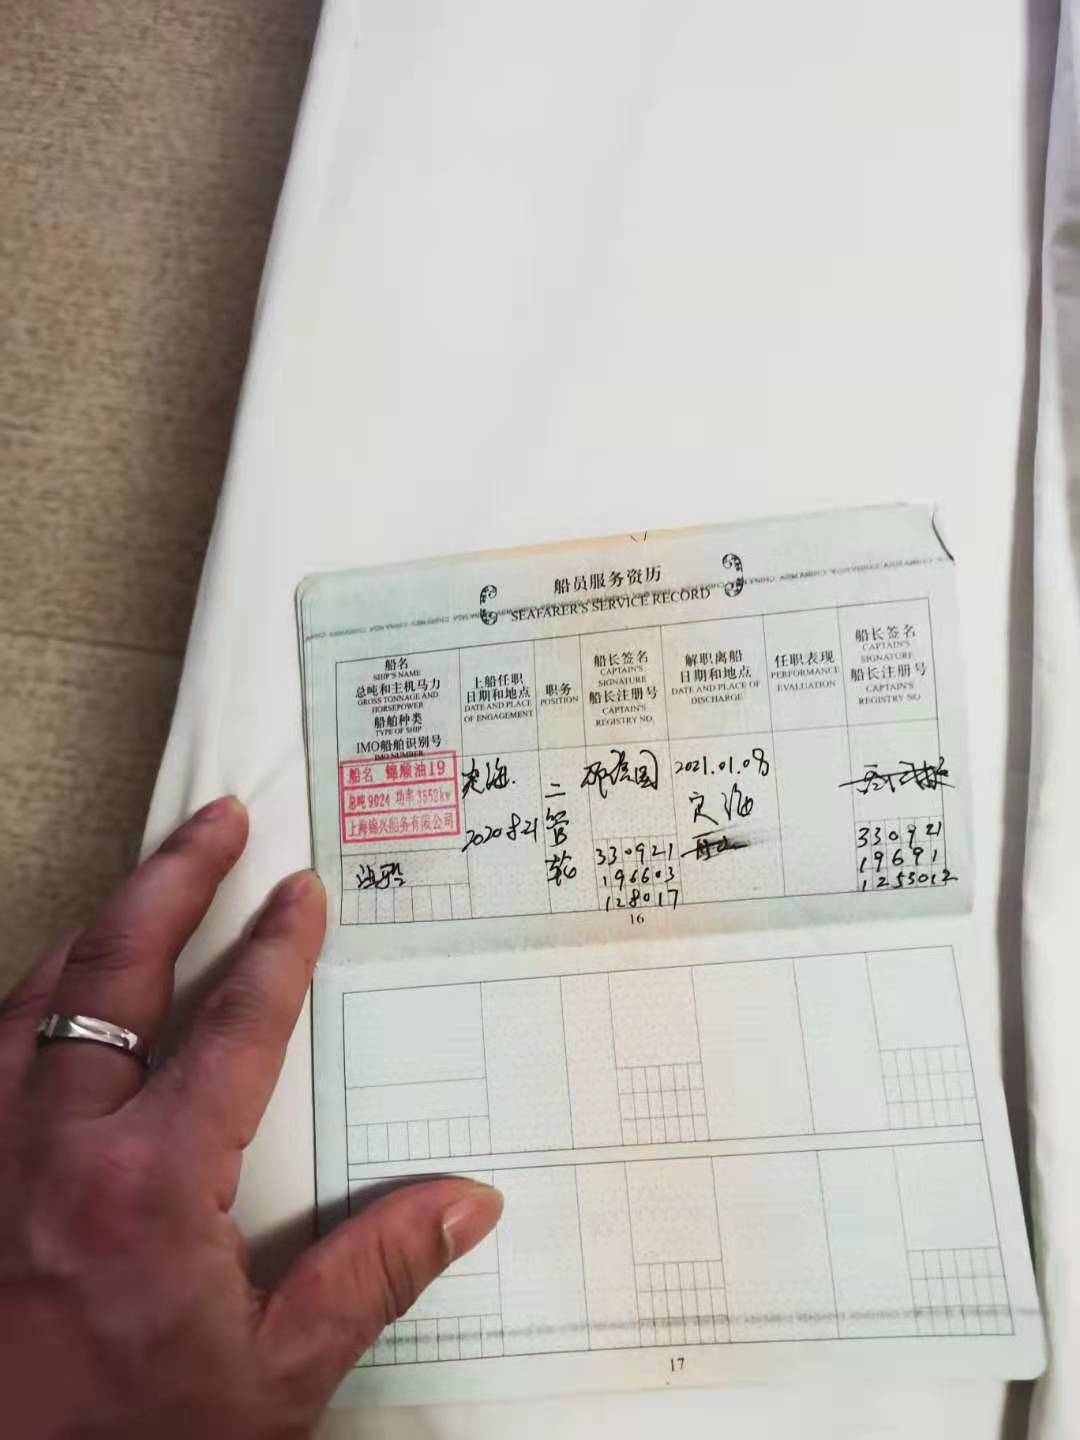 船员服务资历
SEAFARER'S SERVICE RECORD
船名
SHIP'S NAME
总吨和主机马力
GROSS TONNAGE AND
HORSEPOWER
船舶种类
TYPE OF SHIP
IMO船舶识别号
IMO NUMBER
上船任职
日期和地点
DATE AND PLACE
OF ENGAGEMENT
职务
POSITION
船长签名
CAPTAIN'S
SIGNATURE
船长注册号
CAPTAIN'S
REGISTRY NO.
解职离船
日期和地点
DATE AND PLACE OF
DISCHARGE
任职表现
PERFORMANCE
EVALUATION
船长签名
CAPTAIN'S
SIGNATURE
船长注册号
CAPTAIN'S
REGISTRY NO
船名 锦顺油19
总吨9024 功率3552kw
上海锦兴船务有限公司
油船
定海.
2020 8 21
二
管
轮
330921
196603
128017
2021.01.08
定海
330921
19691
1253012
16
17